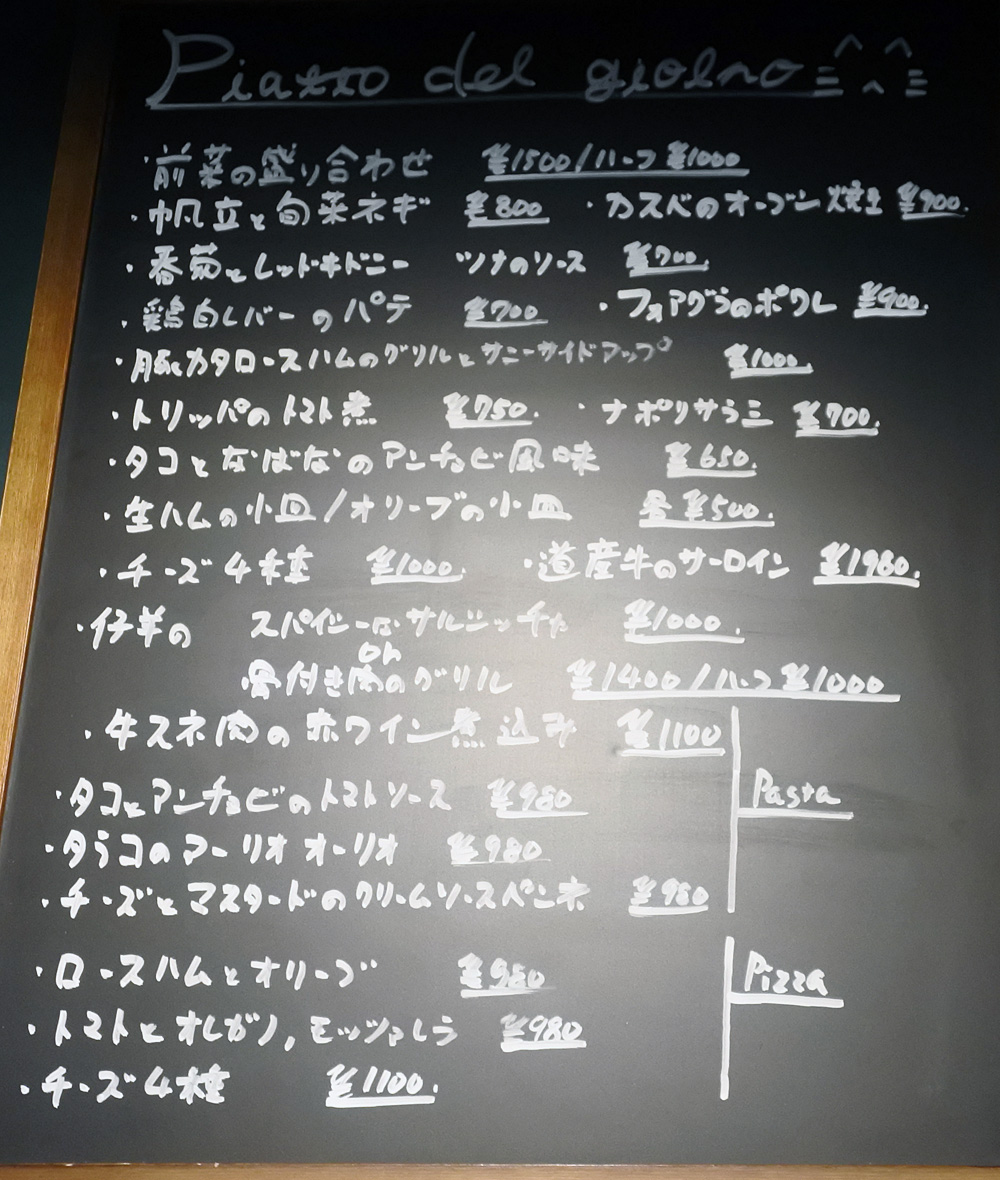 Piatto del giolno
・前菜の盛り合わせ ¥1500/ハーフ ¥1000
・帆立と旬菜ネギ ¥800 ・カスベのオーブン焼き ¥900.
・春菊とレッドキドニー ツナのソース ¥700.
・鶏白レバーのパテ ¥700 ・フォアグラのポワレ ¥900.
・豚カタロースハムのグリルとサニーサイドアップ ¥1000.
・トリッパのトマト煮 ¥750. ・ナポリサラミ ¥700.
・タコとなばなのアンチョビ風味 ¥650.
・生ハムの小皿/オリーブの小皿 各¥500.
・チーズ4種 ¥1000. ・道産牛のサーロイン ¥1980.
・仔羊の スパイシーなサルシッチャ ¥1000.
or
骨付き肉のグリル ¥1400/ハーフ ¥1000
・牛スネ肉の赤ワイン煮込み ¥1100
Pasta
・タコとアンチョビのトマトソース ¥980
・タラコのアーリオオーリオ ¥980
・チーズとマスタードのクリームソースペンネ ¥980
・ロースハムとオリーブ ¥980
Pizza
・トマトとオレガノ,モッツァレラ ¥980
・チーズ4種 ¥1100.